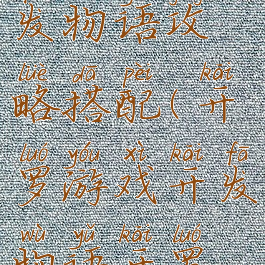 发物语攻
lüè dā pèi kāi
略搭配(开
luó yóu xì kāi fā
罗游戏开发
wù yǔ kāi luó
物语开罗